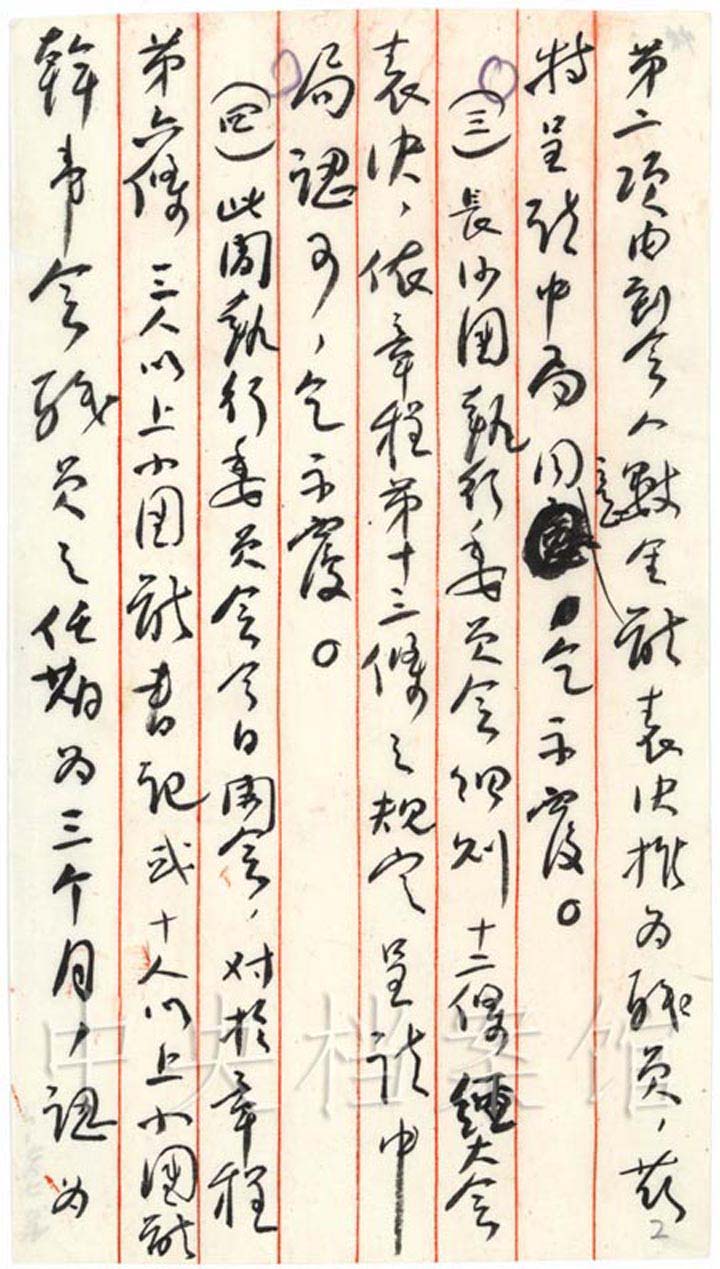 第二項内到会人數全體表决推为職員、兹
特呈請中局同意、乞示覆。
(三)長沙團執行委員会細则十二條經大会
表决、依章程第十三條之規定呈請中
局認可、乞示覆。
(四)此間執行委員会今日開会、对於章程
第六條 三人以上小團體書記或十人以上小團體
幹事会職員之任期为三个月、認为
2
中央档案馆